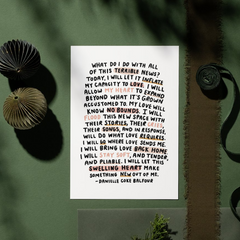 WHAT DO I DO WITH ALL
OF THIS TERRIBLE NEWS?
TODAY, I WILL LET IT INFLATE
MY CAPACITY TO LOVE. I WILL
ALLOW MY HEART TO EXPAND
BEYOND WHAT IT'S GROWN
ACCUSTOMED TO. MY LOVE WILL
KNOW NO BOUNDS. I WILL
FLOOD THIS NEW SPACE WITH
THEIR STORIES, THEIR LIVES,
THEIR SONGS, AND IN RESPONSE,
WILL DO WHAT LOVE REQUIRES.
I WILL GO WHERE LOVE SENDS ME.
I WILL BRING LOVE BACK HOME.
I WILL STAY SOFT, AND TENDER,
AND PLIABLE. I WILL LET THIS
SWELLING HEART MAKE
SOMETHING NEW OUT OF ME.
- DANIELLE COKE BALFOUR